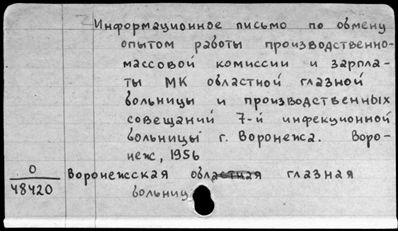 Информационное письмо по обмену
опытом работы производственно-
массовой комиссии и зарпла-
ты МК областной глазной
больницы и производственных
совещаний 7-й инфекционной
больницы г. Воронежа. Воро-
неж, 1956
О
48420
Воронежская областная глазная
больниц